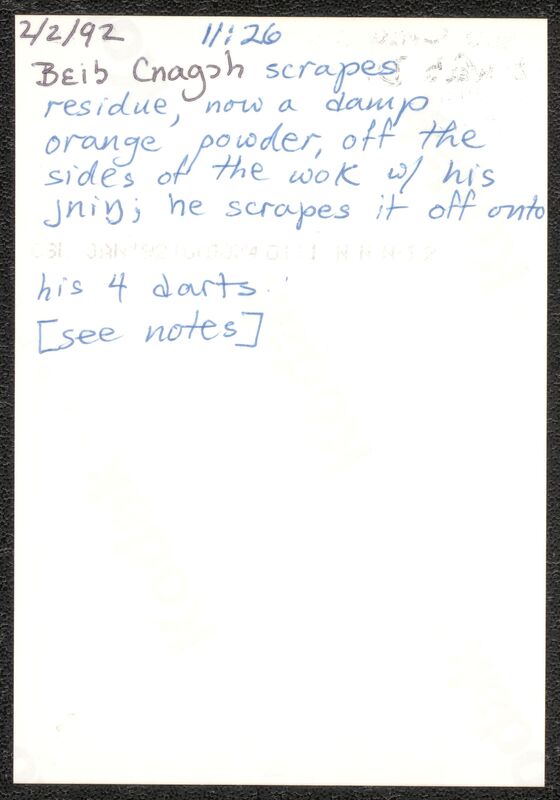 2/2/92 11:26
Bɛib Cnagɔh scrapes
residue, now a damp
orange powder, off the
sides of the wok w/ his
he scrapes it off onto
his 4 darts.
[see notes]
Kodak
Kodak